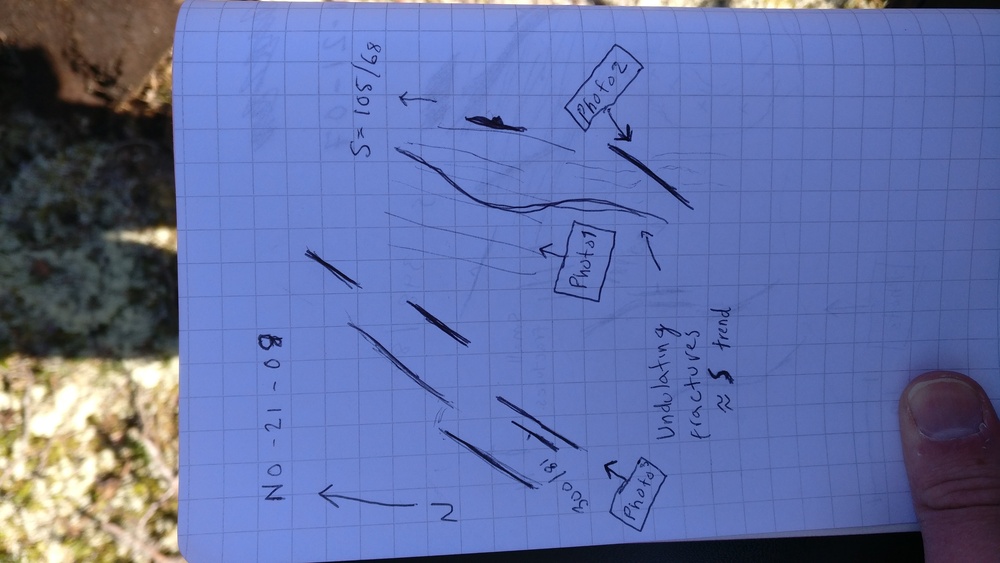 NO-21-08
S = 105/68
N
Photo 2
Photo 1
300/81
Photo 3
Undulating
fractures
≈ S trend